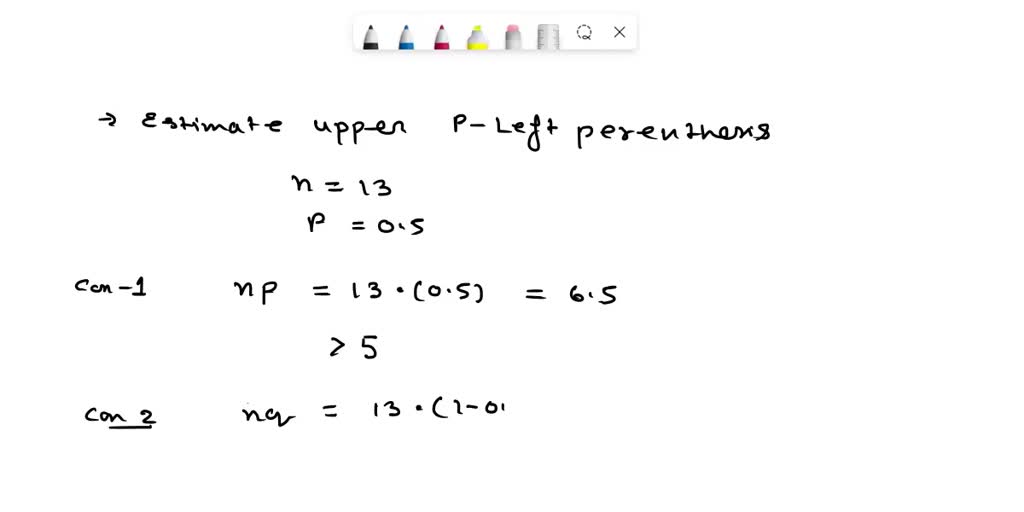 → Estimate upper P-Left perenthesis
n = 13
P = 0.5
Con-1 np = 13 · (0.5) = 6.5
≥ 5
Con 2 nq = 13 · (1-0.